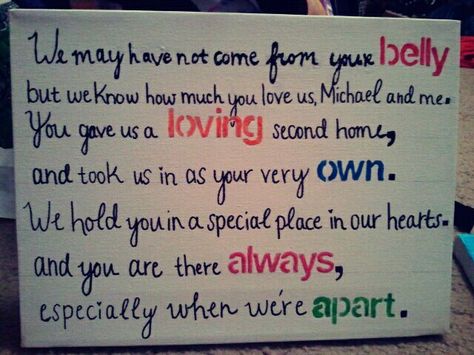 We may have not come from your belly
but we know how much you love us, Michael and me.
You gave us a loving second home,
and took us in as your very own.
We hold you in a special place in our hearts.
and you are there always,
especially when we're apart.